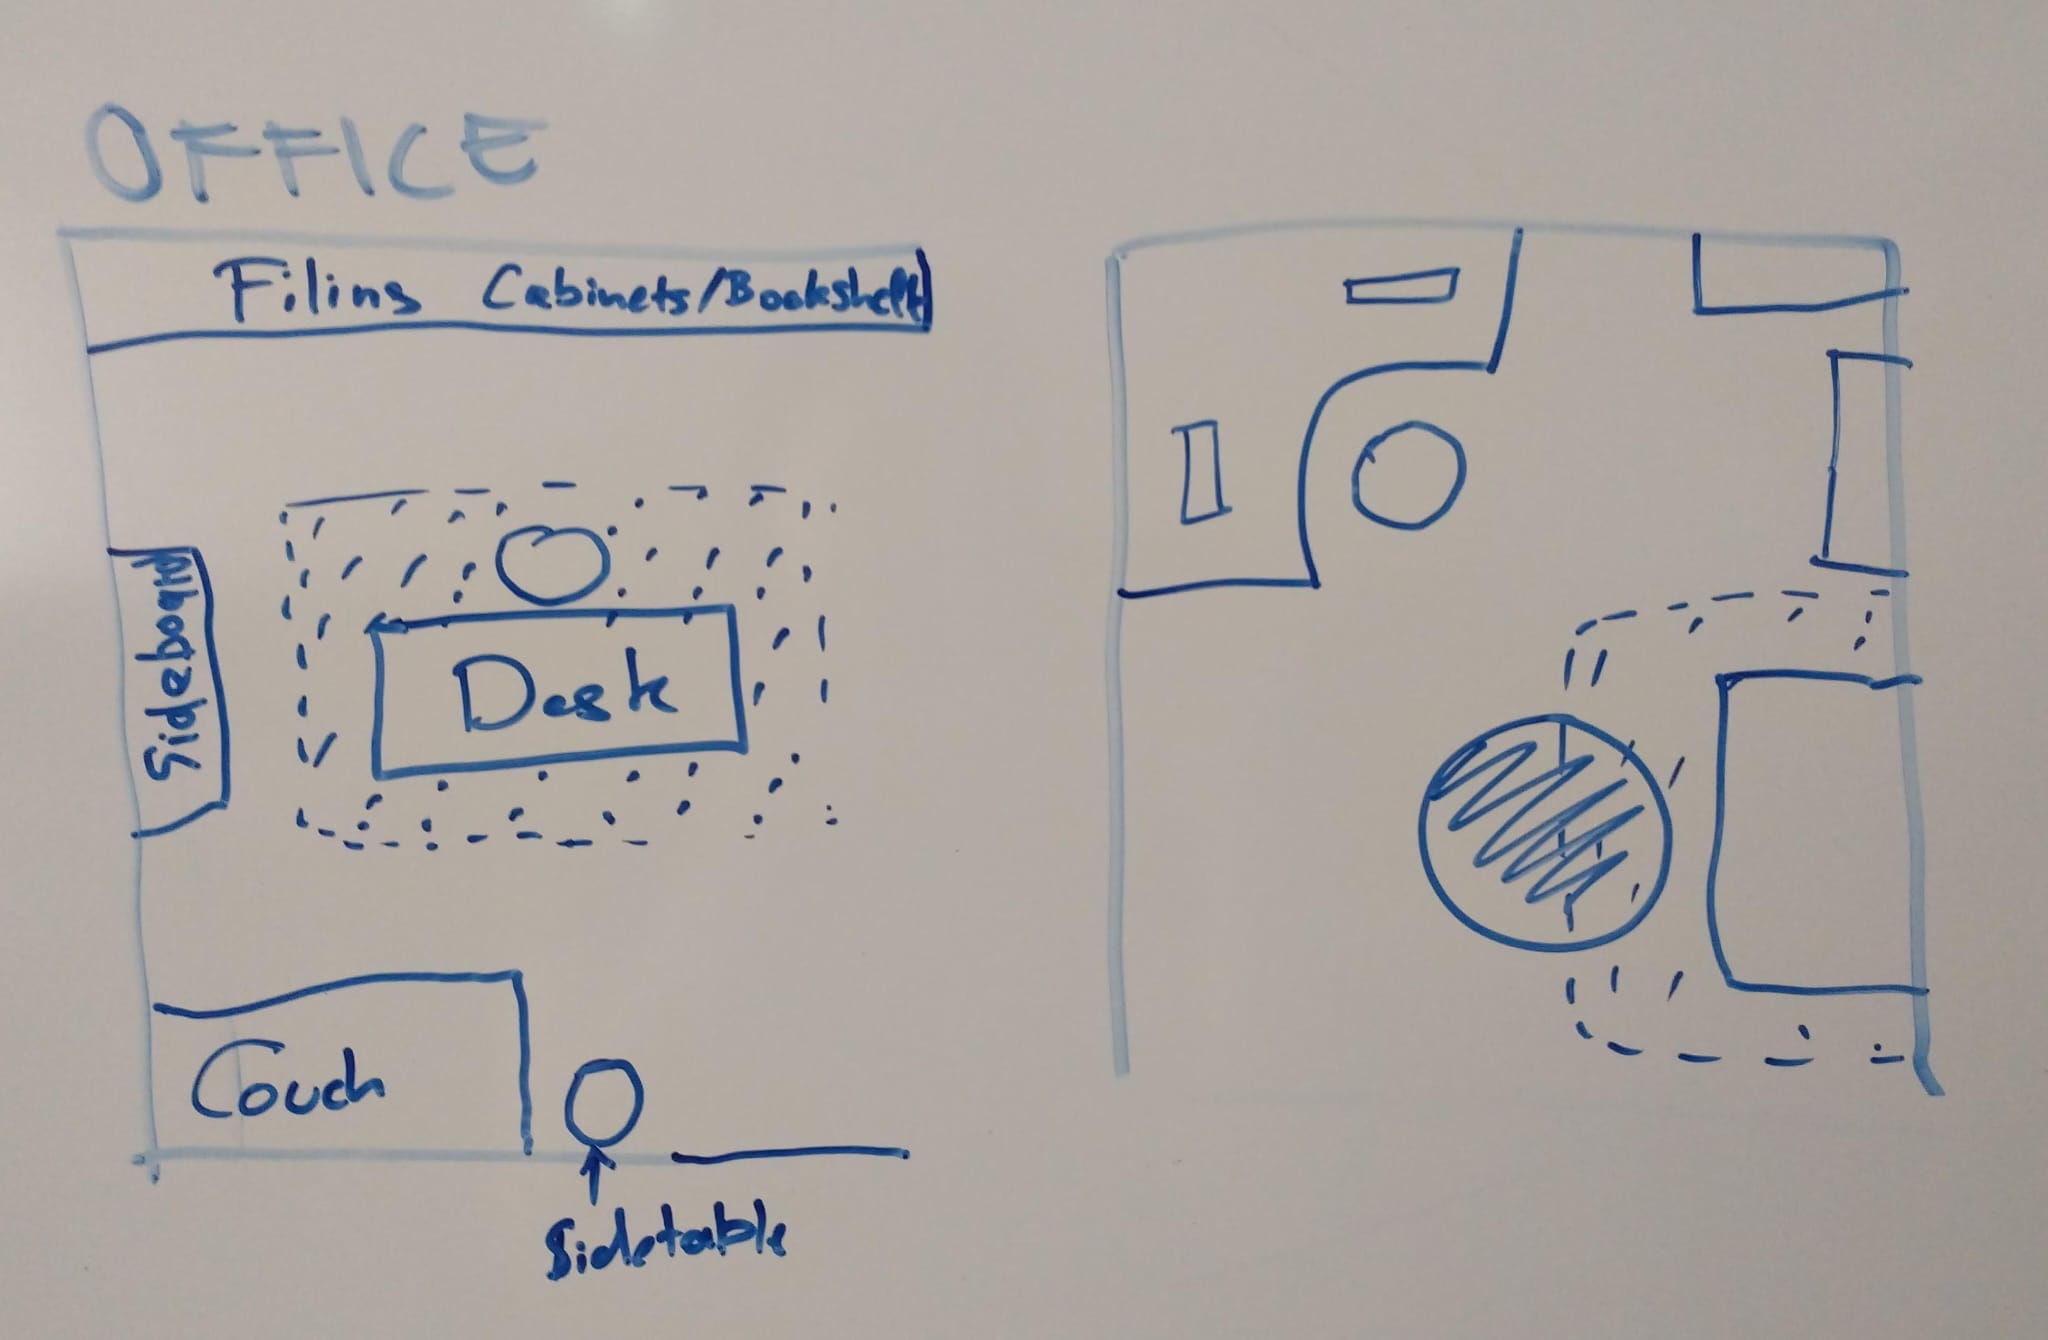 OFFICE
Filing Cabinets/Bookshelf
Sideboard
Desk
Couch
Sidetable